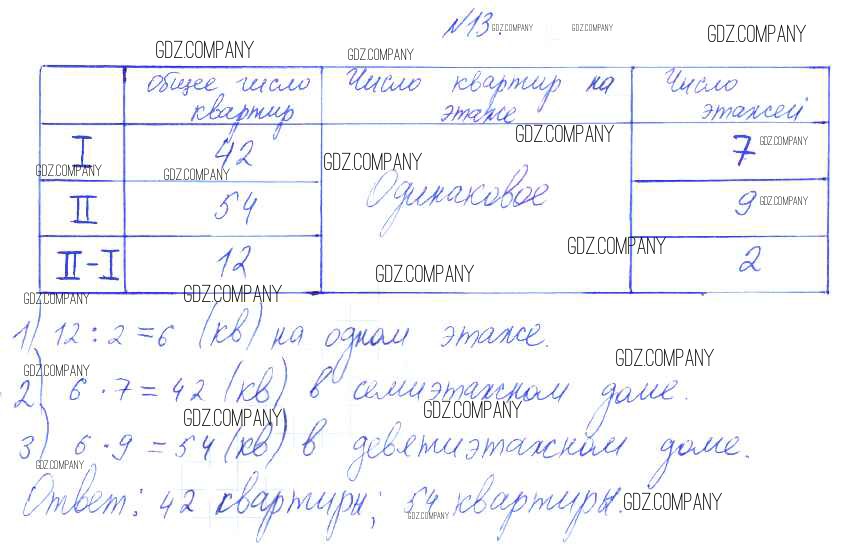 №13.
GDZ.COMPANY GDZ.COMPANY
GDZ.COMPANY GDZ.COMPANY GDZ.COMPANY
Общее число квартир Число квартир на этаже Число этажей
GDZ.COMPANY GDZ.COMPANY
I 42 7
GDZ.COMPANY GDZ.COMPANY GDZ.COMPANY
II 54 Одинаковое 9
GDZ.COMPANY
GDZ.COMPANY
II - I 12 2
GDZ.COMPANY
GDZ.COMPANY GDZ.COMPANY
1) 12 : 2 = 6 (кв) на одном этаже.
GDZ.COMPANY
GDZ.COMPANY
2) 6 · 7 = 42 (кв) в семиэтажном доме.
GDZ.COMPANY GDZ.COMPANY
3) 6 · 9 = 54 (кв) в девятиэтажном доме.
GDZ.COMPANY
Ответ: 42 квартиры; 54 квартиры.
GDZ.COMPANY GDZ.COMPANY